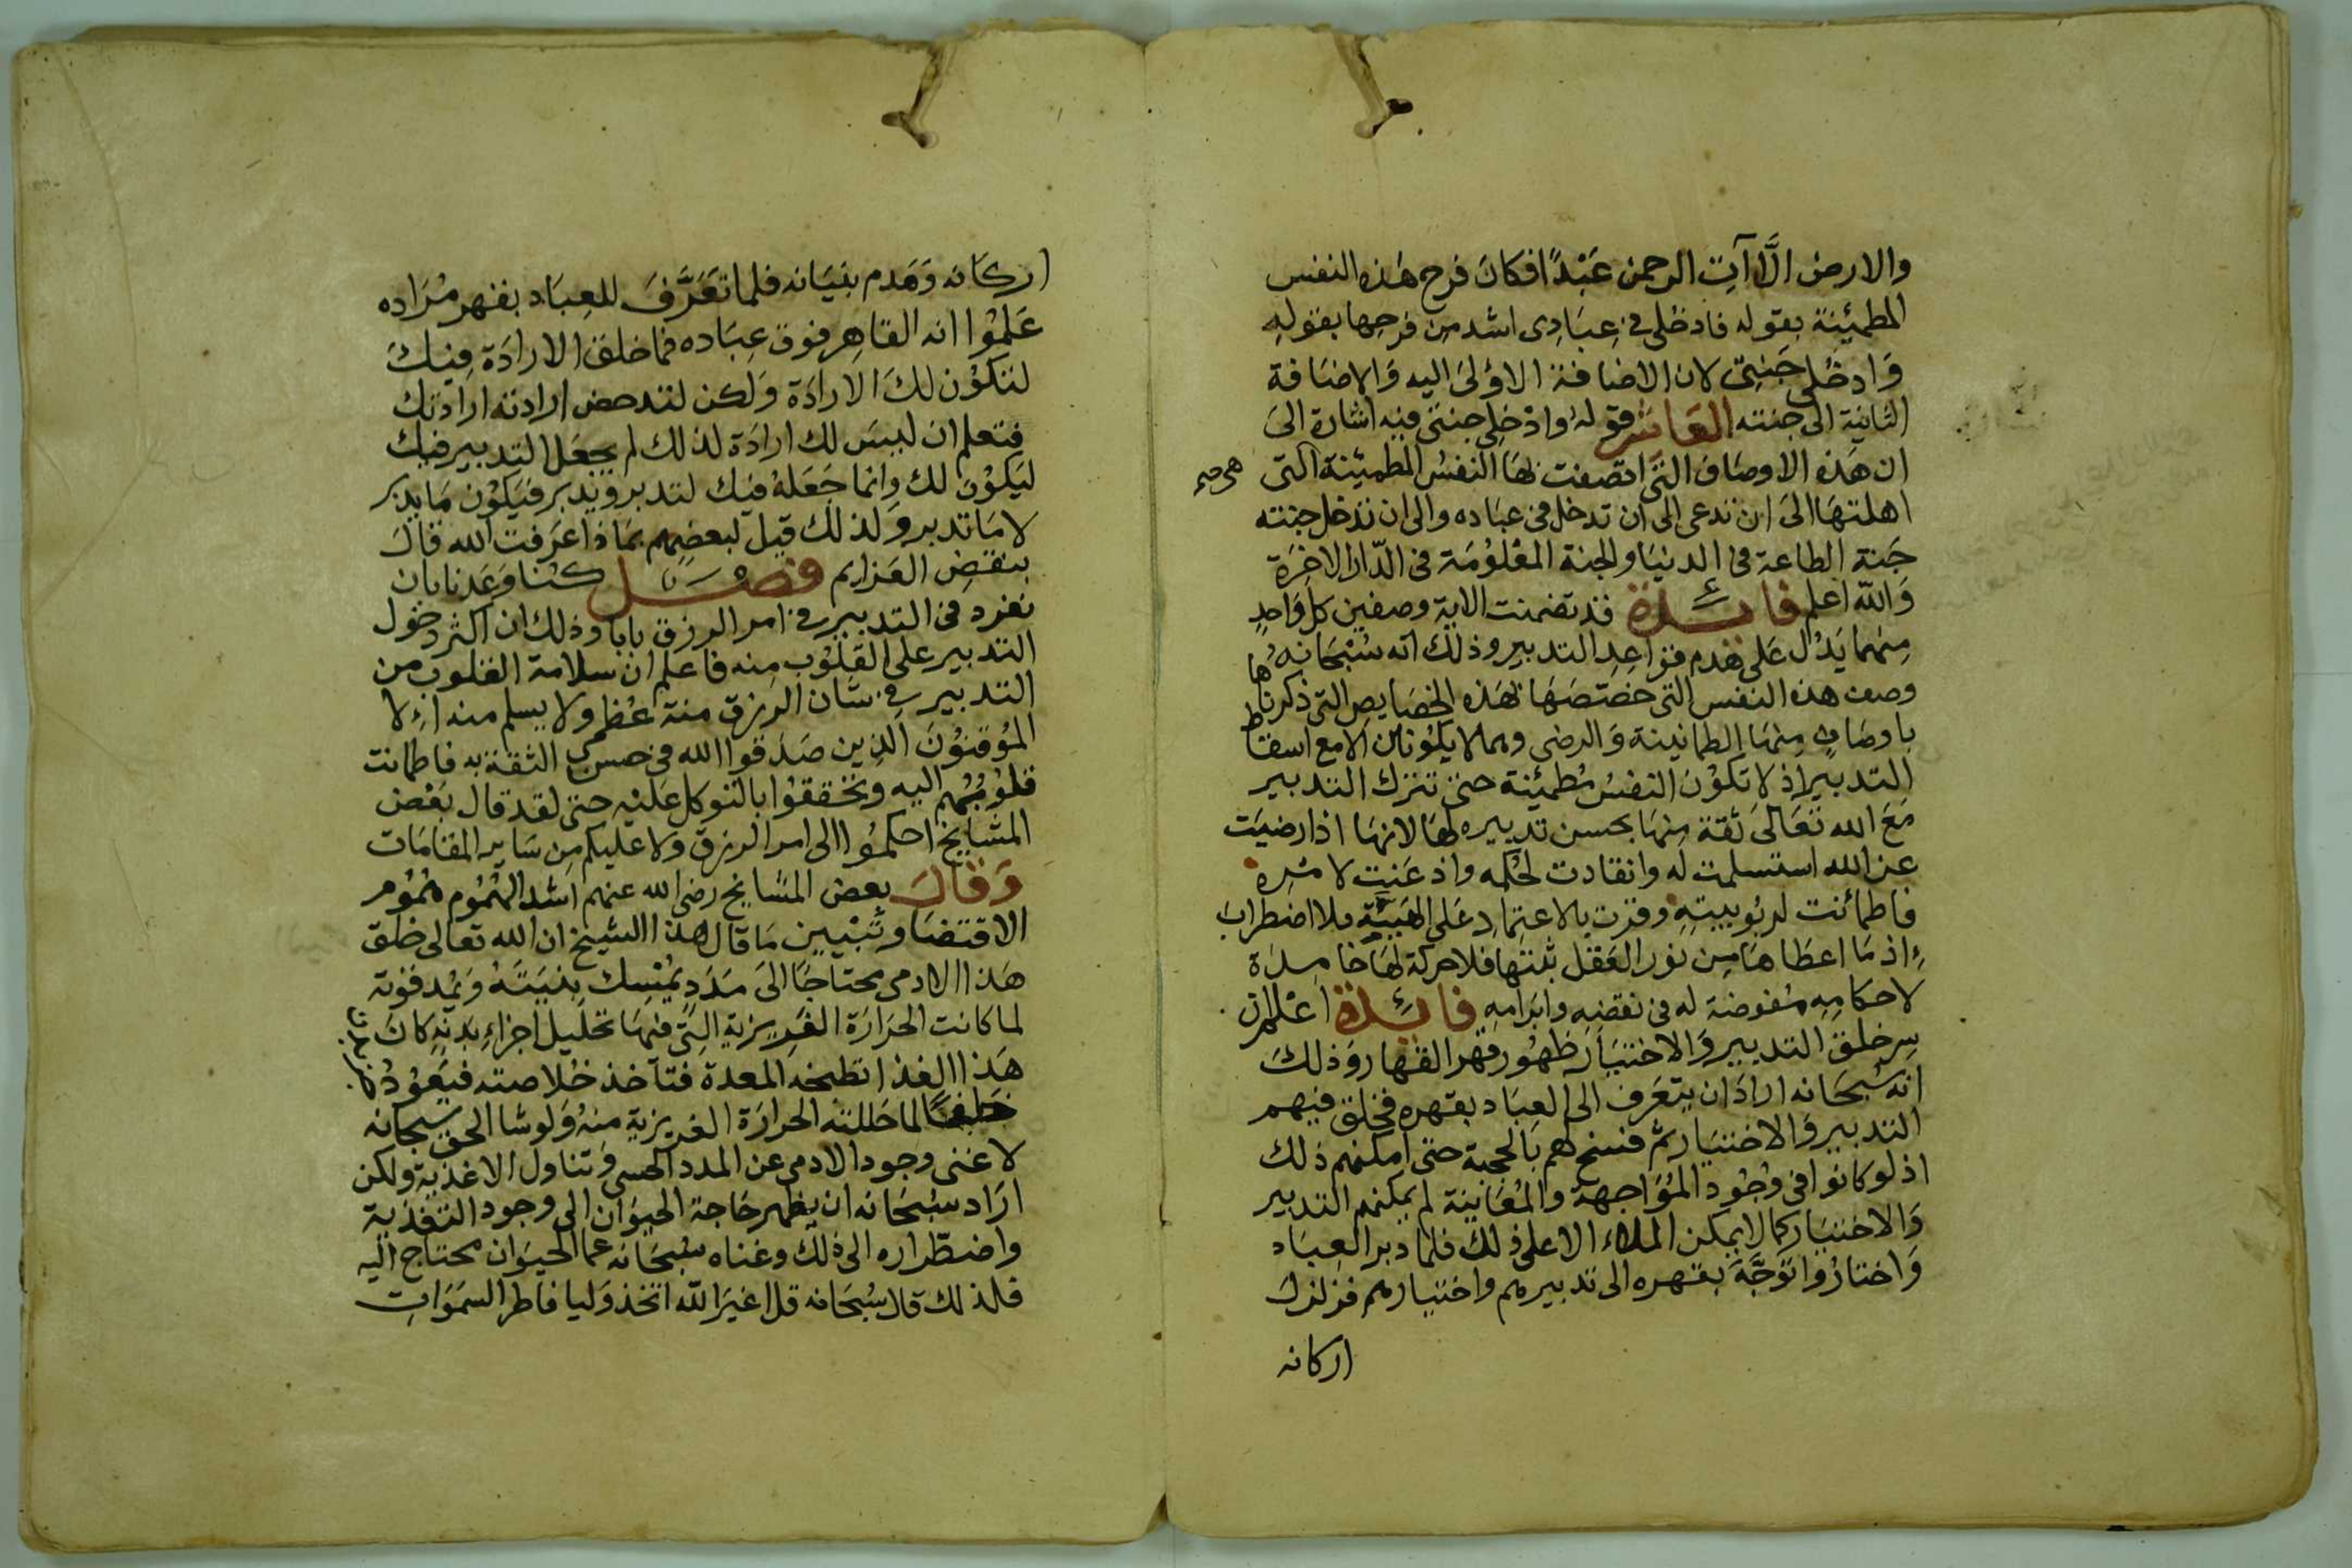 والارض الَّا آتِ الرحمن عَبْدًا فكانَ فرح هَذه النفس
المطمئِنة بقوله فادخُلي في عِبَادِى اشد من فرحِها بقولهِ
وَادخُلي جَنتِى لان الاضافة الاوْلىَ اليه وَالاضَافة
الثانِية الى جنته العَاشر قولهُ وادْخلِى جنتى فيه اشارة الىَ
ان هَذه الاوصَاف التى اتصفت بهَا النفسُ المطمئِنة التى
اهلتهَا الىَ ان تدعى الى ان تدخل فى عبَاده والى ان تدخل جنته
جَنة الطاعة فى الدنيَا والجنة المعْلوُمَة فى الدّار الاخِرَة
وَالله اعلم فائدة قد تضمنت الاية وصفين كل وَاحدٍ
مِنهما يَدُل عَلى هَدم قوَاعِد التدبيرِ وذلكَ انه سُبْحَانهُ
وصف هذه النفس التى خصّصَهَا بهَذه الخصَايص التى ذكرناها
باوصَافٍ مِنهَا الطمانينة وَالرضى وهما لا يكوُنان الا مع اسقاط
التدبير اذ لا تكوُن النفسُ مُطمئِنة حتى تترك التدبير
مَعَ الله تعَالىَ ثقة مِنهَا بحسن تدبيره لهَا لانهَا اذا رضيَت
عن الله استسلمت له وانقادت لحُكمه واذعَنت لامْرِه
فاطمأنت لربُوبيتهِ وقرت بالاعتِمادِ عَلى الهَيبَّةِ فلا اضطرابَ
اذ مَا اعطَاهَا مِن نور العَقل ثبتهَا فلا حركة لهَا خامِدَة
لاحكامِهِ مُفوضة له فى نقضِهِ وابرَامهِ فائدة اعْلم ان
سِر خلق التدبير وَالاختيَار ظهُور قهر القهار وَذلكَ
انه سُبحَانه ارادَ ان يتعَرف الى العِبَاد بقهرهِ فخلق فيهم
التدبير وَالاختيَار ثم فسح لهم بالحجبة حتى امكنهم ذلك
اذ لو كانوا فى وجُود الموَُاجهة والمُعَاينة لم يمكنهم التدبير
وَالاختيَار كما لا يمكن الملاء الاعلى ذلك فلمّا دبر العِبَاد
وَاختارُوا توَجَّهَ بقهره الى تدبيرهم واختيارهم فزلزلَ
اركانه
اركَانه وَهَدم بنيَانه فلما تعَرَّفَ للعِبَاد بقهر مُرَاده
عَلمُوا انه القاهِر فوق عِبَاده فما خلق الارادَة فِيكَ
لتكوُن لكَ الارادَة وَلكن لتدحض ارادته ارادتك
فتعلم ان ليسَ لك ارادَة لذلك لم يجعَل التدبير فيك
ليَكوُنَ لك وانمَا جَعَلهُ فيك لتدبر ويدبر فيَكوُن مَا يدبر
لا مَا تدبر وَلذلك قيل لبعضِهم بمَاذا عَرَفت الله قالَ
بنقضِ العَزايم فصل كنا وَعَدنا بان
نفرد فى التدبير فى امر الرزق بابا وذلك ان اكثر دخول
التدبير على القلوُب منه فاعلم ان سلامة القلوب من
التدبير فى شان الرزق منة عُظمى ولا يسلم منه الا
الموُقنوُنَ الذِين صَدَقوا الله فى حسن الثقة به فاطمانت
قلوُبُهم اليه وتحققوُا بالتوكل عَليْه حتى لقد قال بعْض
المشَايخ احكموُا الى امر الرزق ولا عليكم مِن سَاير المقامَات
وَقالَ بعض المشايخ رضى الله عنهم اشد الهُمُوم همُوم
الاقتضَا وتَبْيين مَا قال هذا الشيخ ان الله تعالى خلق
هَذا الادمى محتاجًا الىَ مَدَدٍ يمْسِك بنيَتَهُ وَيُمد قوته
لما كانت الحرَارَة الغَرِيزية التِى فيهَا تحليل اجزاءِ بدنهِ كانَ
هَذا الغذا تطبخه المعدة فتأخذ خُلاصته فيَعوُدُ
خلفًا لما حَللته الحرارَة الغريزية منهُ وَلو شا الحق سبحانه
لاغنى وجود الادمى عن المدد الحسى وتناول الاغذية ولكن
ارَاد سُبْحَانه ان يظهر حَاجة الحيوَان الى وجود التغذية
واضطّراره الى ذلك وغناه سُبحَانه عما الحيَوان محتاج اليه
فلذلك قال سُبْحَانه قل اغيرَ الله اتخذ وَليا فاطر السمَوَاتِ